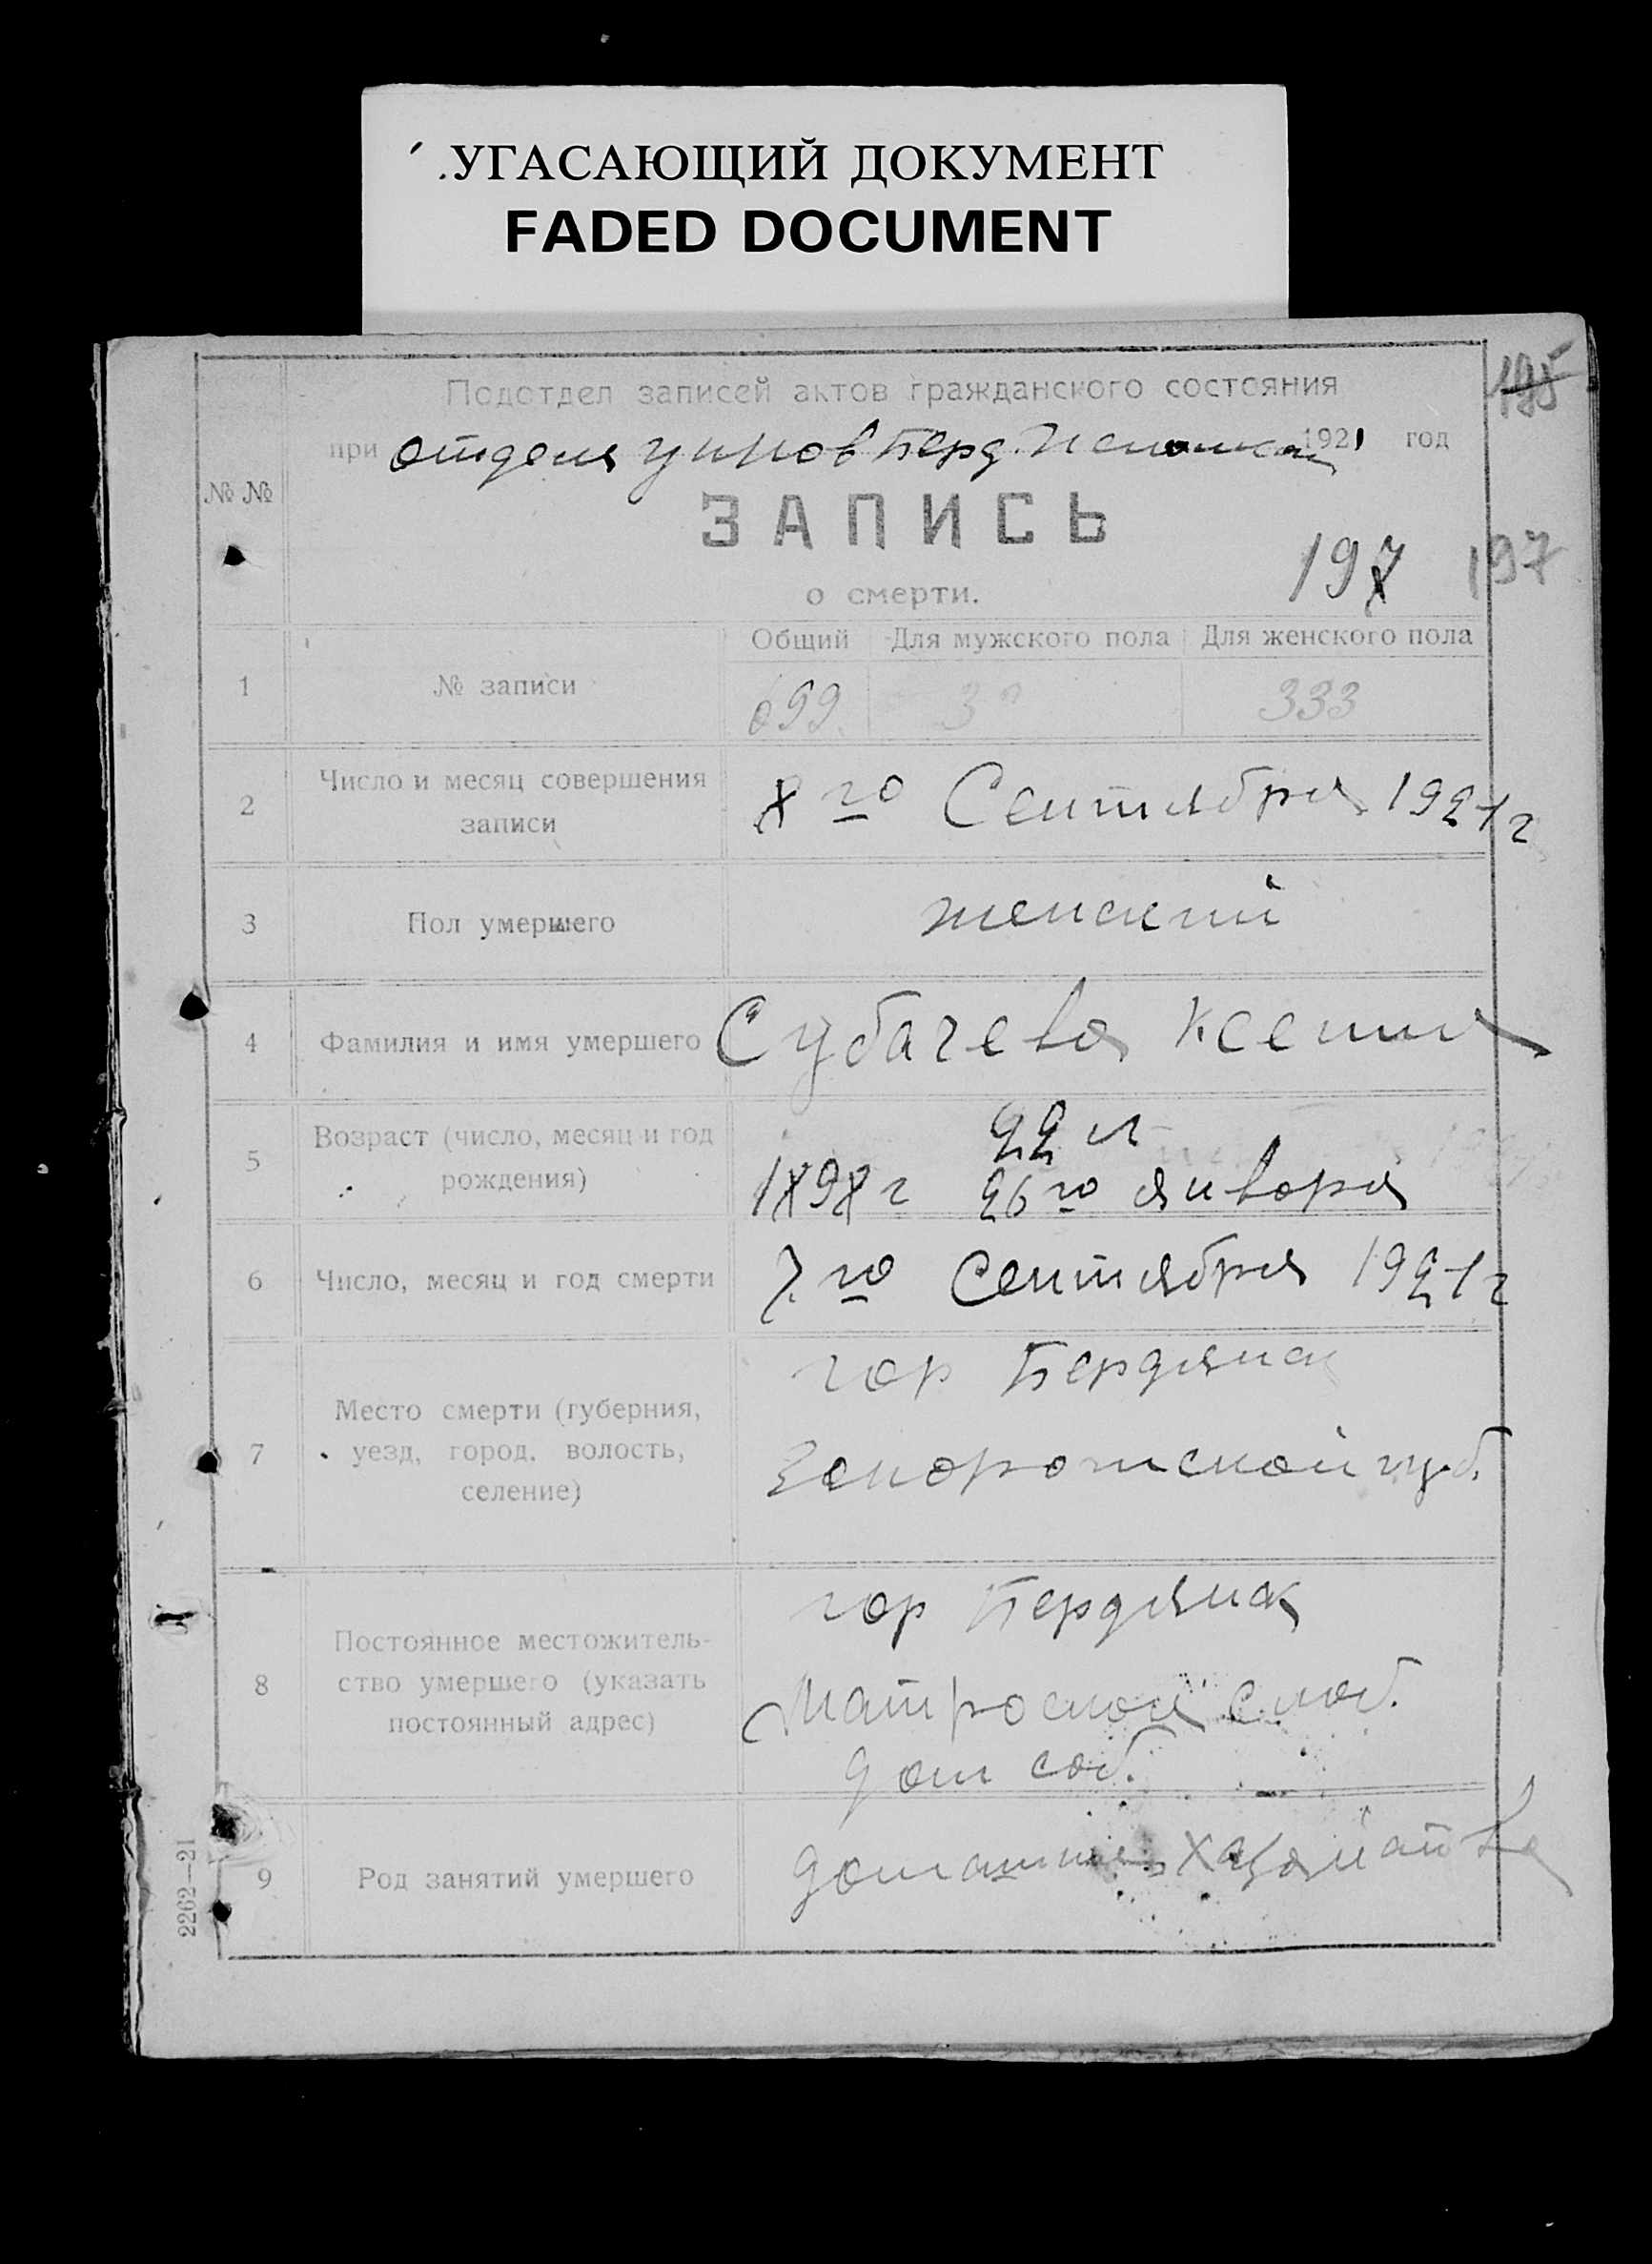 УГАСАЮЩИЙ ДОКУМЕНТ
FADED DOCUMENT
195
Подотдел записей актов гражданского состояния
при отделе управ Берд. 1921 год
№ №
ЗАПИСЬ
198 197
о смерти.
Общий Для мужского пола Для женского пола
1 № записи 699 333
2 Число и месяц совершения
записи
8 го Сентября 1921 г
3 Пол умершего женский
4 Фамилия и имя умершего Субачева Ксения
5 Возраст (число, месяц и год
рождения)
22 л
1898 г 26 го января
6 Число, месяц и год смерти 7 го Сентября 1921 г
7 Место смерти (губерния,
уезд, город, волость,
селение)
гор Бердянск
Запорожской губ.
8 Постоянное местожитель-
ство умершего (указать
постоянный адрес)
гор Бердянск
Матроской слоб.
дом соб.
9 Род занятий умершего домашнее хазяйства
2262—21